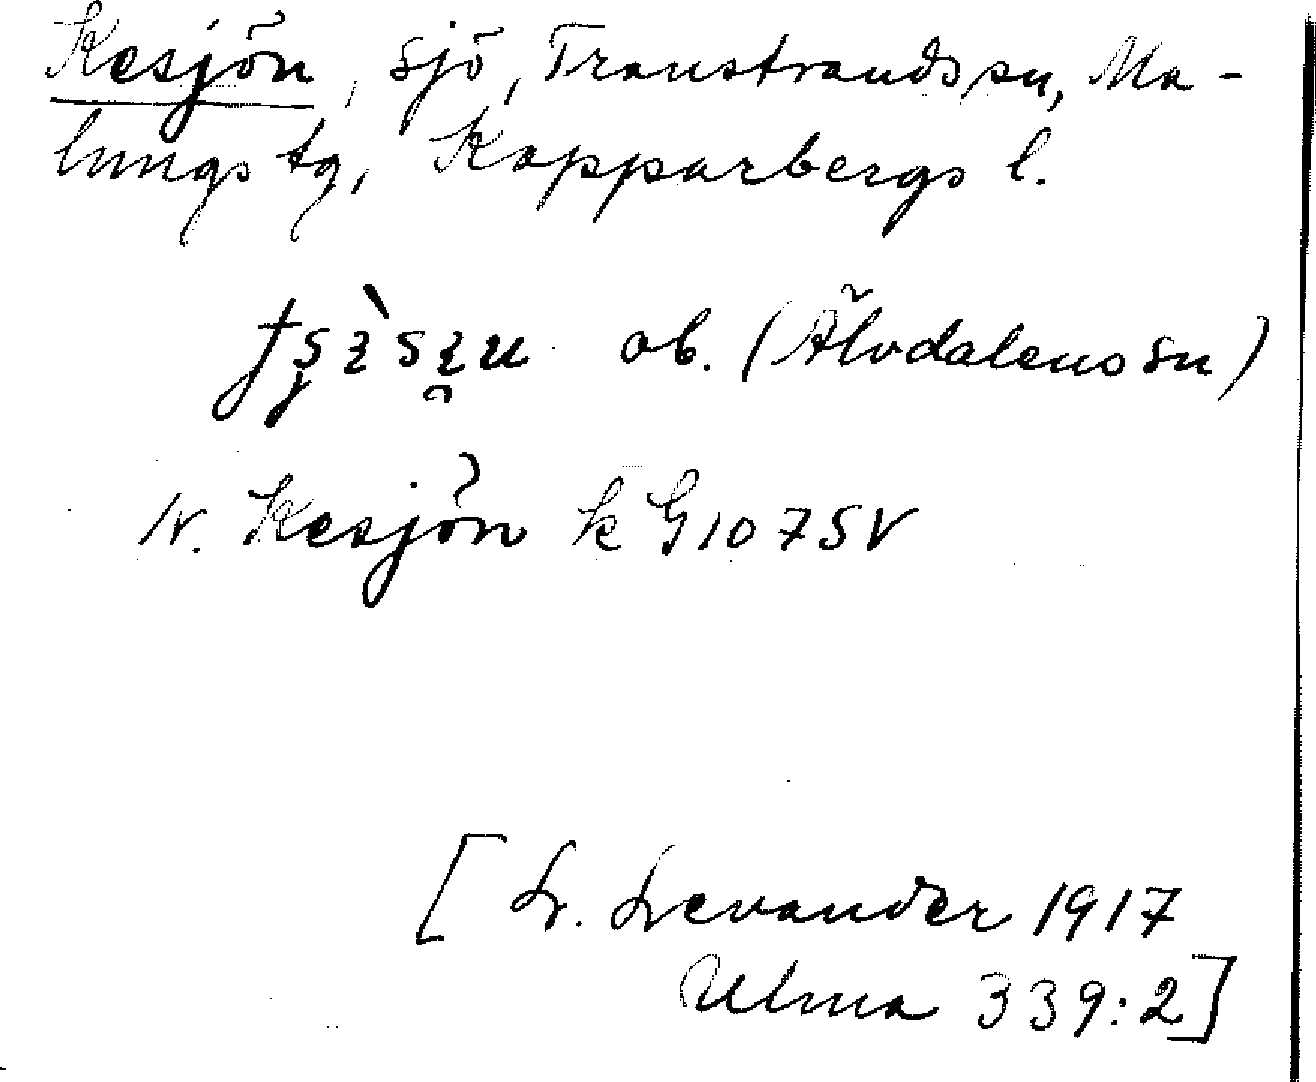 Kesjön, sjö, Transtrands sn, Ma-
lungs tg, Kopparbergs l.
ob. (Älvdalens sn)
N. Kesjön k G107SV
[L. Levander 1917
Ulma 339:2]